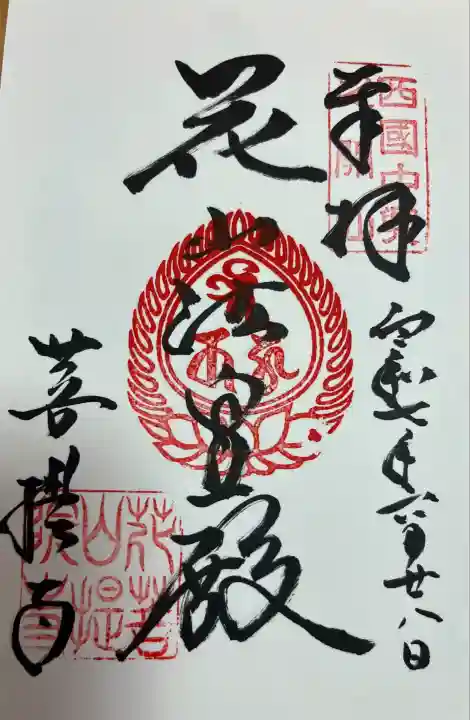 西國中興
開山
奉拝
令和七年六月廿八日
花山法皇殿
菩提寺
花山
菩提寺